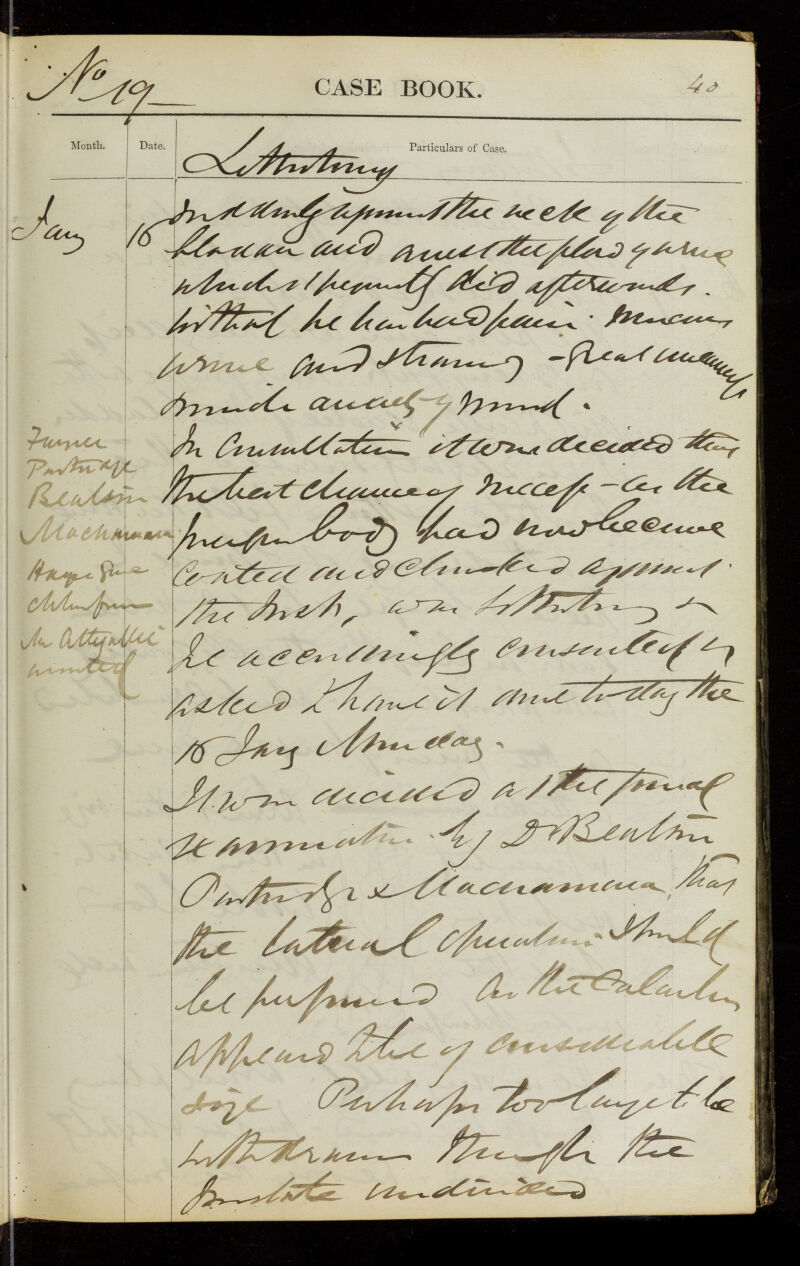 No 19
CASE BOOK.
40
Month.
Date.
Particulars of Case.
Lithotomy
Jany 16
suddenly against the neck of the
bladder and arrest the flow of urine
which subsequently did afterwards.
With all he has had pain. Mucous
urine and straining - great uneasiness
inside anxiety of mind.
In Consultation it was decided that
the best chance of success - as the
foreign body had now become
coated and against
the , was Lithotomy &
he accordingly consented &
asked to have it done today the
16 Jany Monday.
It was decided at the final
examination by Dr Beatson
Partridge & Macnamara, that
the lateral operation should
be performed as the Calculus
appeared to be of considerable
size Perhaps too large to be
withdrawn through the
prostate undivided
Partridge
Beatson
Macnamara
Chloroform
assisted